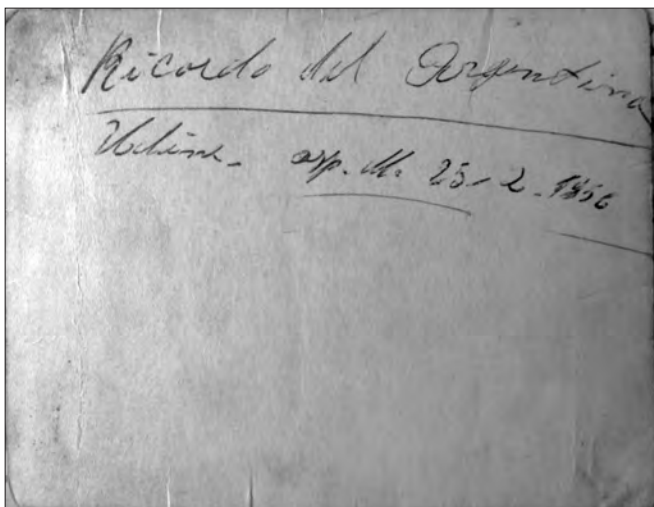 Ricordo del Argentina
Udine - osp. M. 25-2-1956